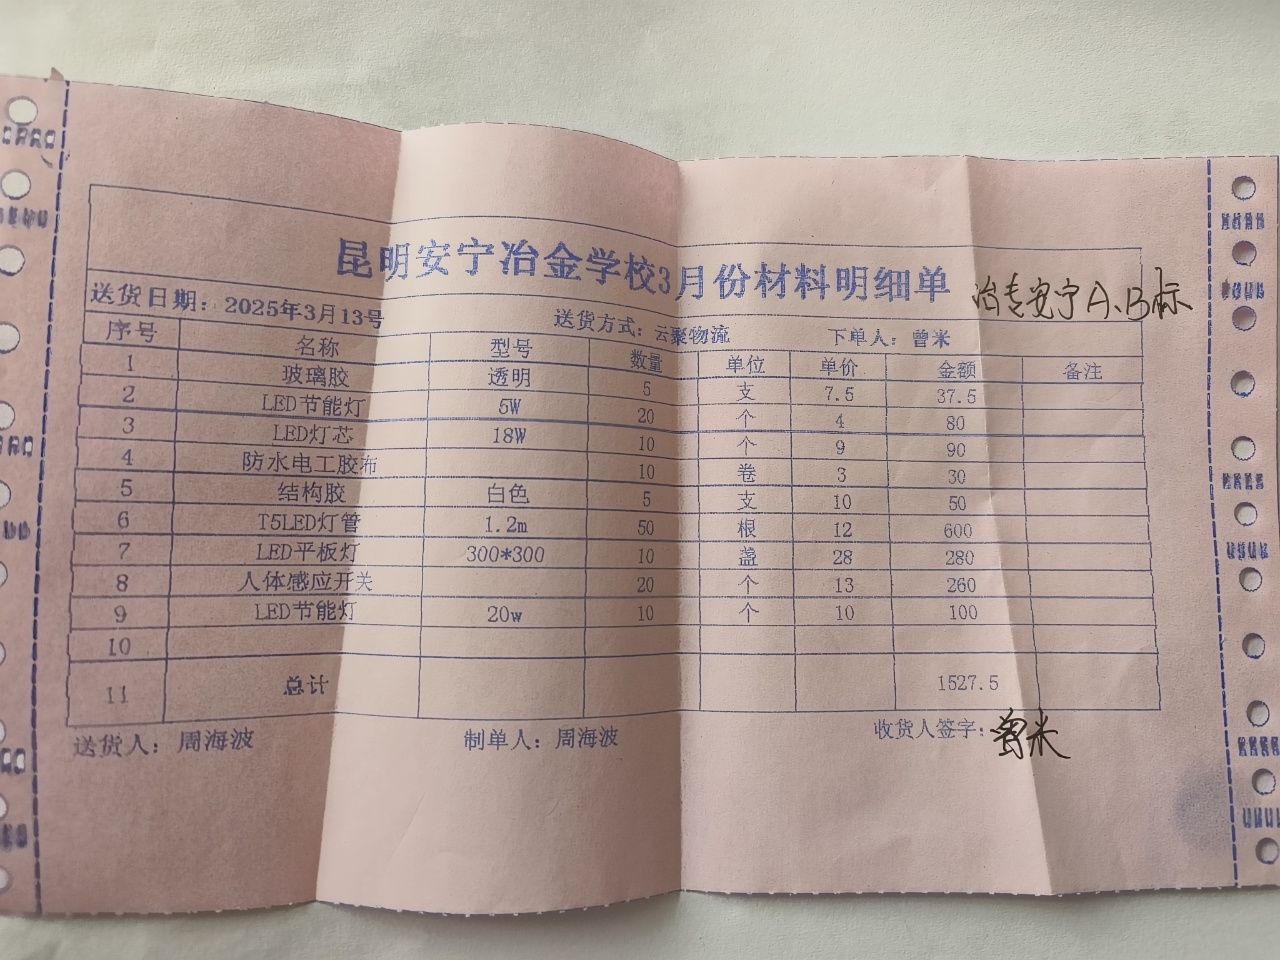 昆明安宁冶金学校3月份材料明细单
冶专安宁A、B标
送货日期：2025年3月13号 送货方式：云聚物流 下单人：曾米
序号 名称 型号 数量 单位 单价 金额 备注
1 玻璃胶 透明 5 支 7.5 37.5
2 LED节能灯 5W 20 个 4 80
3 LED灯芯 18W 10 个 9 90
4 防水电工胶布 10 卷 3 30
5 结构胶 白色 5 支 10 50
6 T5LED灯管 1.2m 50 根 12 600
7 LED平板灯 300*300 10 盏 28 280
8 人体感应开关 20 个 13 260
9 LED节能灯 20w 10 个 10 100
10
11 总计 1527.5
送货人：周海波 制单人：周海波 收货人签字：曾米